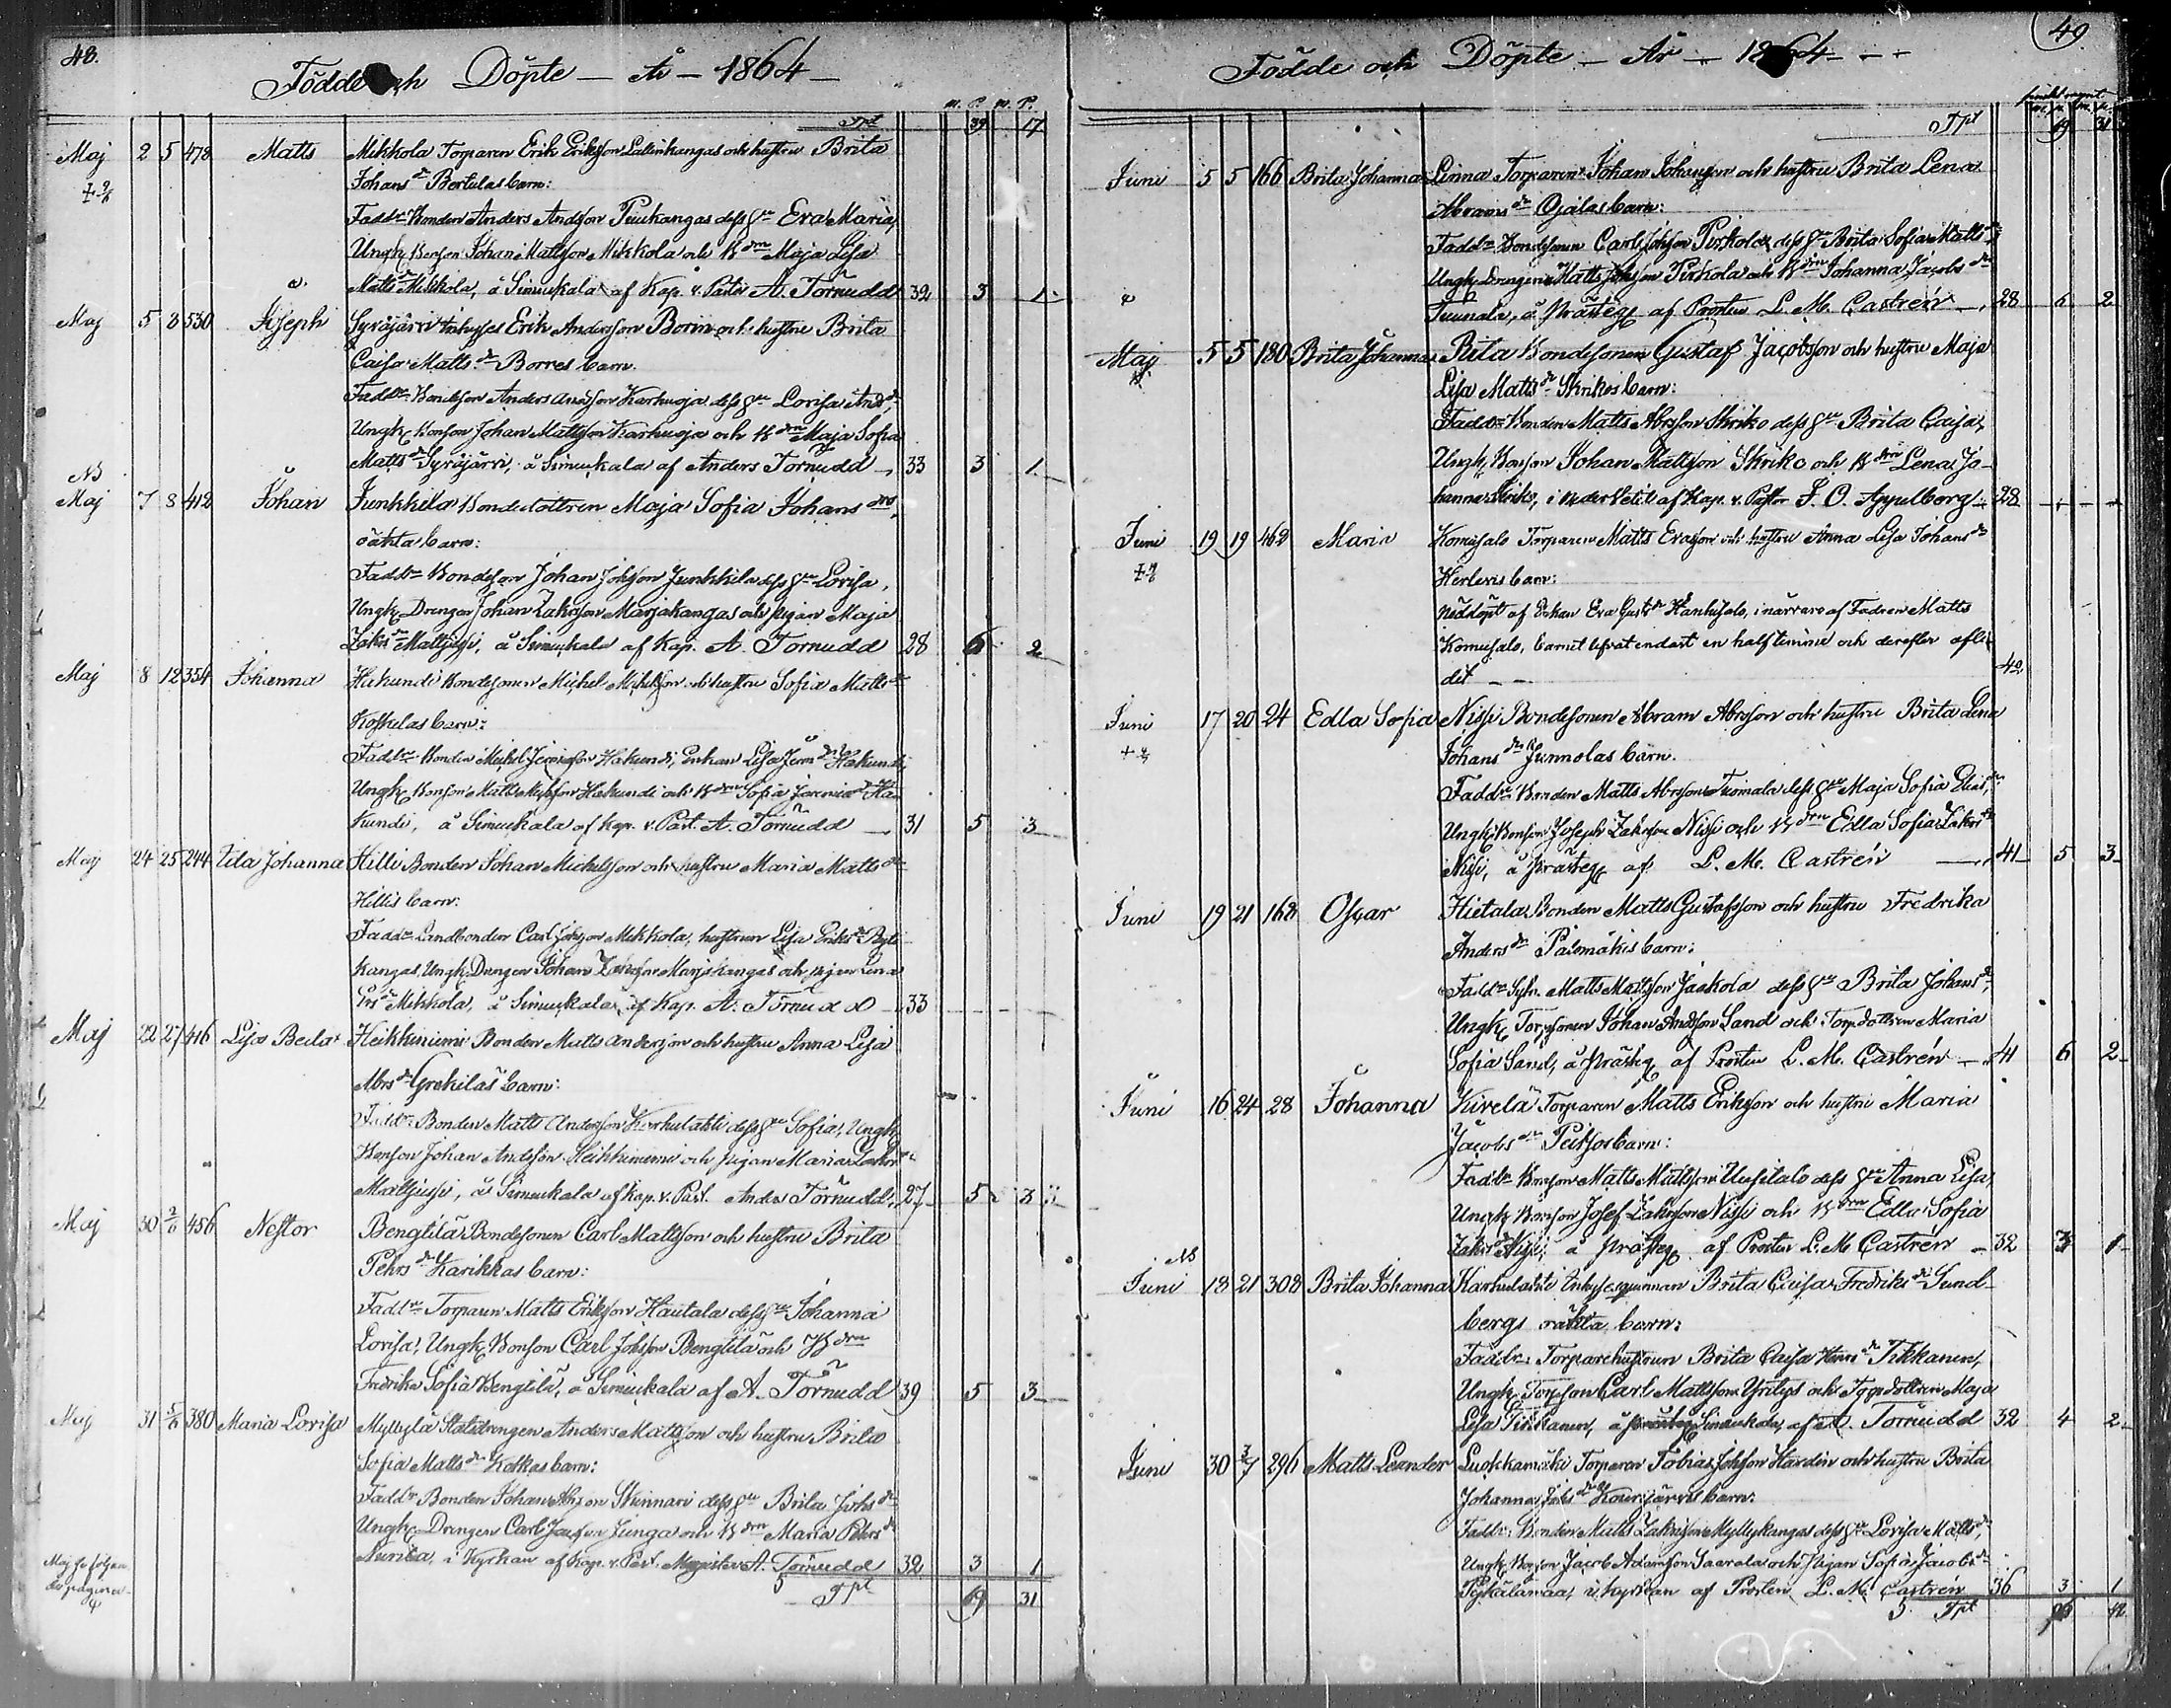 48.
Födde och Döpte — År — 1864 —
m. p. m. p.
Tpt 39 17
Maj 2 5 478 Matts Mikkola Torparen Erik Eriksson Lattinkangas och hustru Brita
Johans dr Bertulas barn:
Faddr Bonden Anders Andsson Puukangas dess hu Eva Maria,
Ungk Bonson Johan Mattsson Mikkola och B drn Maja Lisa
Matts dr Mikkola, å Simukala af Kap. v. Pastor A. Törnudd 32 3 1
Maj 5 8 530 Joseph Syräjärvi Inhyses Erik Andersson Borin och hustru Brita
Caisa Matts dr Borres barn.
Fadd Bondeson Anders Andsson Karhuoja dess hu Lovisa And dr,
Ungk Bonson Johan Mattsson Karhuoja och B drn Maja Sofia
Matts dr Syräjärvi, å Simukala af Anders Törnudd — 33 3 1
NB
Maj 7 8 412 Johan Junkkila Bondedottren Maja Sofia Johans drs
oäkta barn:
Fadd Bondeson Johan Johsson Junkkila dess hu Lovisa,
Ungk Drengen Johan Zakrsson Marjakangas och pigan Maja
Zakrs dr Mattjussi, å Simukala af Kap. A. Törnudd 28 6 2
Maj 8 12 354 Johanna Hakundi Bondesonen Michel Michelsson och hustru Sofia Matts dr
Koskelas barn:
Fadd Bonden Michel Jeremsson Hakundi, Enkan Lisa Jerm dr Hakundi,
Ungk Bonson Matts Michsson Hakundi och B drn Sofia Jeremias dr Ha-
kundi, å Simukala af Kap. v. Past. A. Törnudd — 31 5 3
Maj 24 25 244 Ida Johanna Hilli Bonden Johan Michelsson och hustru Maria Matts dr
Hillis barn:
Fadd Landbonden Carl Johsson Mikkola, hustrun Lisa Eriks dr Byti-
kangas, Ungk Drengen Johan Zakrsson Marjakangas och pigan Lena
Ers dr Mikkola, å Simukala, af Kap. A. Törnudd — 33
Maj 22 27 416 Lisa Beda Heikkiniemi Bonden Matts Andersson och hustru Anna Lisa
Abrs dr Grekilas barn:
Fadd: Bonden Matts Andersson Karhulahti dess hu Sofia, Ungk
Bonson Johan Andsson Heikkiniemi och pigan Maria Zakrs dr
Mattjussi, å Simukala af Kap. v. Past. Anders Törnudd 27 5 3
Maj 30 2/6 456 Nestor Bengtilä Bondesonen Carl Mattsson och hustru Brita
Pehrs dr Karikkas barn:
Fadd Torparen Matts Eriksson Hautala dess hu Johanna
Lovisa, Ungk Bonson Carl Johsson Bengtilä och B drn
Fredrika Sofia Bengtilä, å Simukala af A. Törnudd 39 5 3
Maj 31 5/6 380 Maria Lovisa Myllylä Statsdrengen Anders Mattsson och hustru Brita
Sofia Matts dr Kotkas barn:
Fadd Bonden Johan Abrsson Skinnari dess hu Brita Johs dr
Ungk Drengen Carl Jacsson Junga och B drn Maria Pehrs dr
i Kyrkan af Kap. v. Past. Magister A. Törnudd 32 3 1
Maj se följan
de pagina
Tpt 69 31
49.
Födde och Döpte — År — 1864 —
Tpt 69 31
Juni 5 5 166 Brita Johanna Linna Torparen Johan Johansson och hustru Brita Lena
Abrams dr Ojalas barn:
Fadd Bondesonen Carl Johsson Pirkola, dess hu Brita Sofia Matts dr,
Ungk Drengen Matts Johsson Pirkola och B drn Johanna Jacobs dr
Tuunala, å Prästeg af Prosten L. M. Castrén — 28 6 2
Maj 5 5 180 Brita Johanna Rita Bondesonen Gustaf Jacobsson och hustru Maja
Lisa Matts dr Skrikos barn:
Fadd Bonden Matts Abrsson Skriko dess hu Brita Caisa,
Ungk Bonson Johan Mattsson Skriko och B drn Lena Jo-
hanna Skriko, i Nedervetil af Kap. v. Pastor F. O. Appelberg 28
Juni 19 19 462 Maria Komusalo Torparen Matts Ersson och hustru Anna Lisa Johans dr
Herlevis barn:
Nöddöpt af Enkan Eva Gusts dr Hänhisalo, i närvaro af Fadren Matts
Komusalo, barnet lefvat endast en half timme och derefter afli-
dit — — 40
Juni 17 20 24 Edla Sofia Nissi Bondesonen Abram Abrsson och hustru Brita Lena
Johans dr Junnolas barn.
Fadd Bonden Matts Abrsson Tuomala dess hu Maja Sofia Elias dr,
Ungk Bonson Joseph Zakrsson Nissi och B drn Edla Sofia Zakrs dr
Nissi, å prästeg af L. M. Castrén — 41 5 3
Juni 19 21 168 Oscar Hietala Bonden Matts Gustafsson och hustru Fredrika
Anders dr Palomäkis barn:
Fadd Sytn. Matts Mattsson Jaakola dess hu Brita Johans dr,
Ungk Torpsonen Johan Andsson Sand och Torpdottren Maria
Sofia Sand, å prästeg af Prosten L. M. Castrén — 41 6 2
Juni 16 24 28 Johanna Kivelä Torparen Matts Eriksson och hustru Maria
Jacobs dr Peitsos barn:
Fadd Bonson Matts Mattsson Uusitalo dess hu Anna Lisa,
Ungk Bonson Josef Zakrsson Nissi och B drn Edla Sofia
Zakrs dr Nissi, å prästeg af Prosten L. M. Castrén — 32 3 1
NB
Juni 18 21 308 Brita Johanna Karhulahti Inhysesqvinnan Brita Caisa Fredriks dr Sund-
bergs oäkta barn:
Fadd: Torparehustrun Brita Caisa Henrs dr Tikkanen,
Ungk Torpson Carl Mattsson Yrilys och Torpdottren Maja
Lisa Tikkanen, å Simukala, af A. Törnudd 32 4 2
Juni 30 3/7 296 Matts Leander Luokkamäki Torparen Tobias Johsson Hardin och hustru Brita
Johanna Jakobs dr Kourijärvis barn:
Fadd: Bonden Matts Zakrisson Myllykangas dess hu Lovisa Matts dr,
Ungk Bonson Jacob Adamsson Saarela och Pigan Sofia Jacobs dr
i Kyrkan af Prosten L. M. Castrén 36 3 1
Tpt 96 42